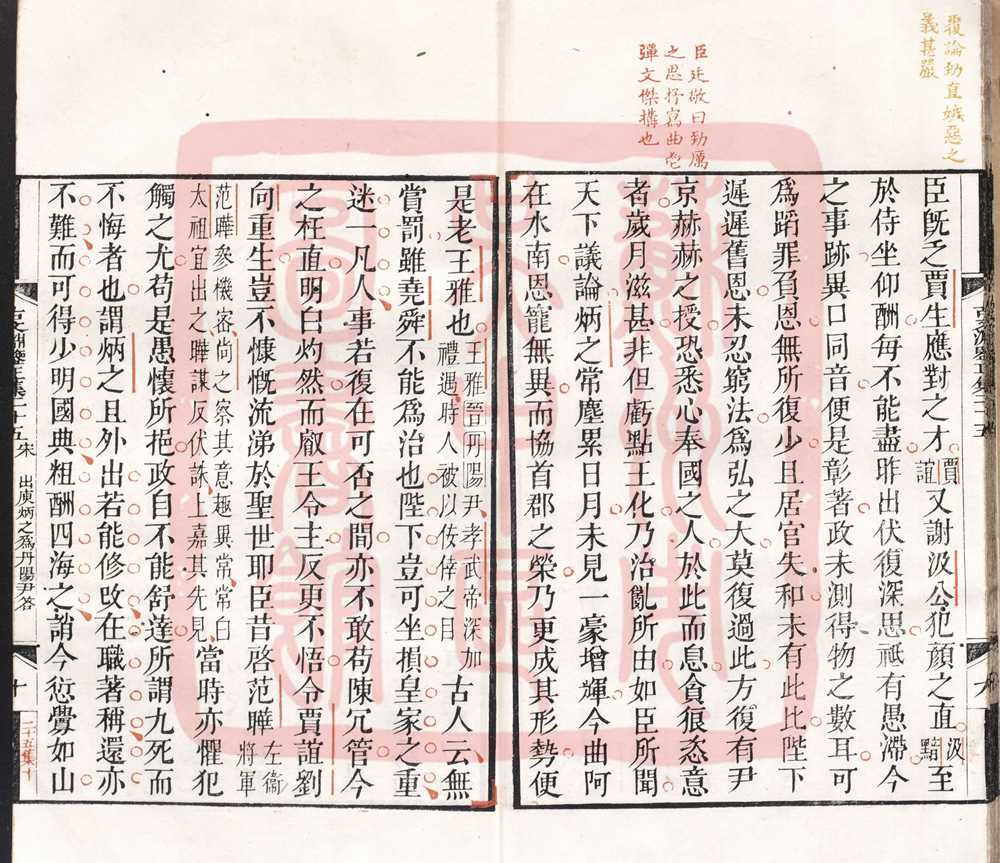 覆論劫直嫉惡之
義甚嚴
臣廷敬曰勁厲
之思抒寫曲壱
彈文傑搆也
臣旣乏賈生應對之才賈誼又謝汲公犯顏之直汲黯至
於侍坐仰酬每不能盡昨出伏復深思祗有愚滯今
之事跡異口同音便是彰著政未測得物之數耳可
爲蹈罪負恩無所復少且居官失和未有此比陛下
遲遲舊恩未忍窮法爲弘之大莫復過此方復有尹
京赫赫之授恐悉心奉國之人於此而息貪狠恣意
者歲月滋甚非但虧點王化乃治亂所由如臣所聞
天下議論炳之常塵累日月未見一豪增輝今曲阿
在水南恩寵無異而協首郡之榮乃更成其形勢便
是老王雅也王雅晉丹陽尹孝武帝深加禮遇時人被以佞倖之目古人云無
賞罰雖堯舜不能爲治也陛下豈可坐損皇家之重
迷一凡人事若復在可否之間亦不敢苟陳冗管今
之枉直明白灼然而叡王令主反更不悟令賈誼劉
向重生豈不慷慨流涕於聖世耶臣昔啓范曄左衞將軍
范曄參機密尙之察其意趣異常白太祖宜出之曄謀反伏誅上嘉其先見當時亦懼犯
觸之尤苟是愚懷所挹政自不能舒達所謂九死而
不悔者也謂炳之且外出若能修攺在職著稱還亦
不難而可得少明國典粗酬四海之誚今愆舋如山
宋 出庾炳之爲丹陽尹答
十
二十五集十